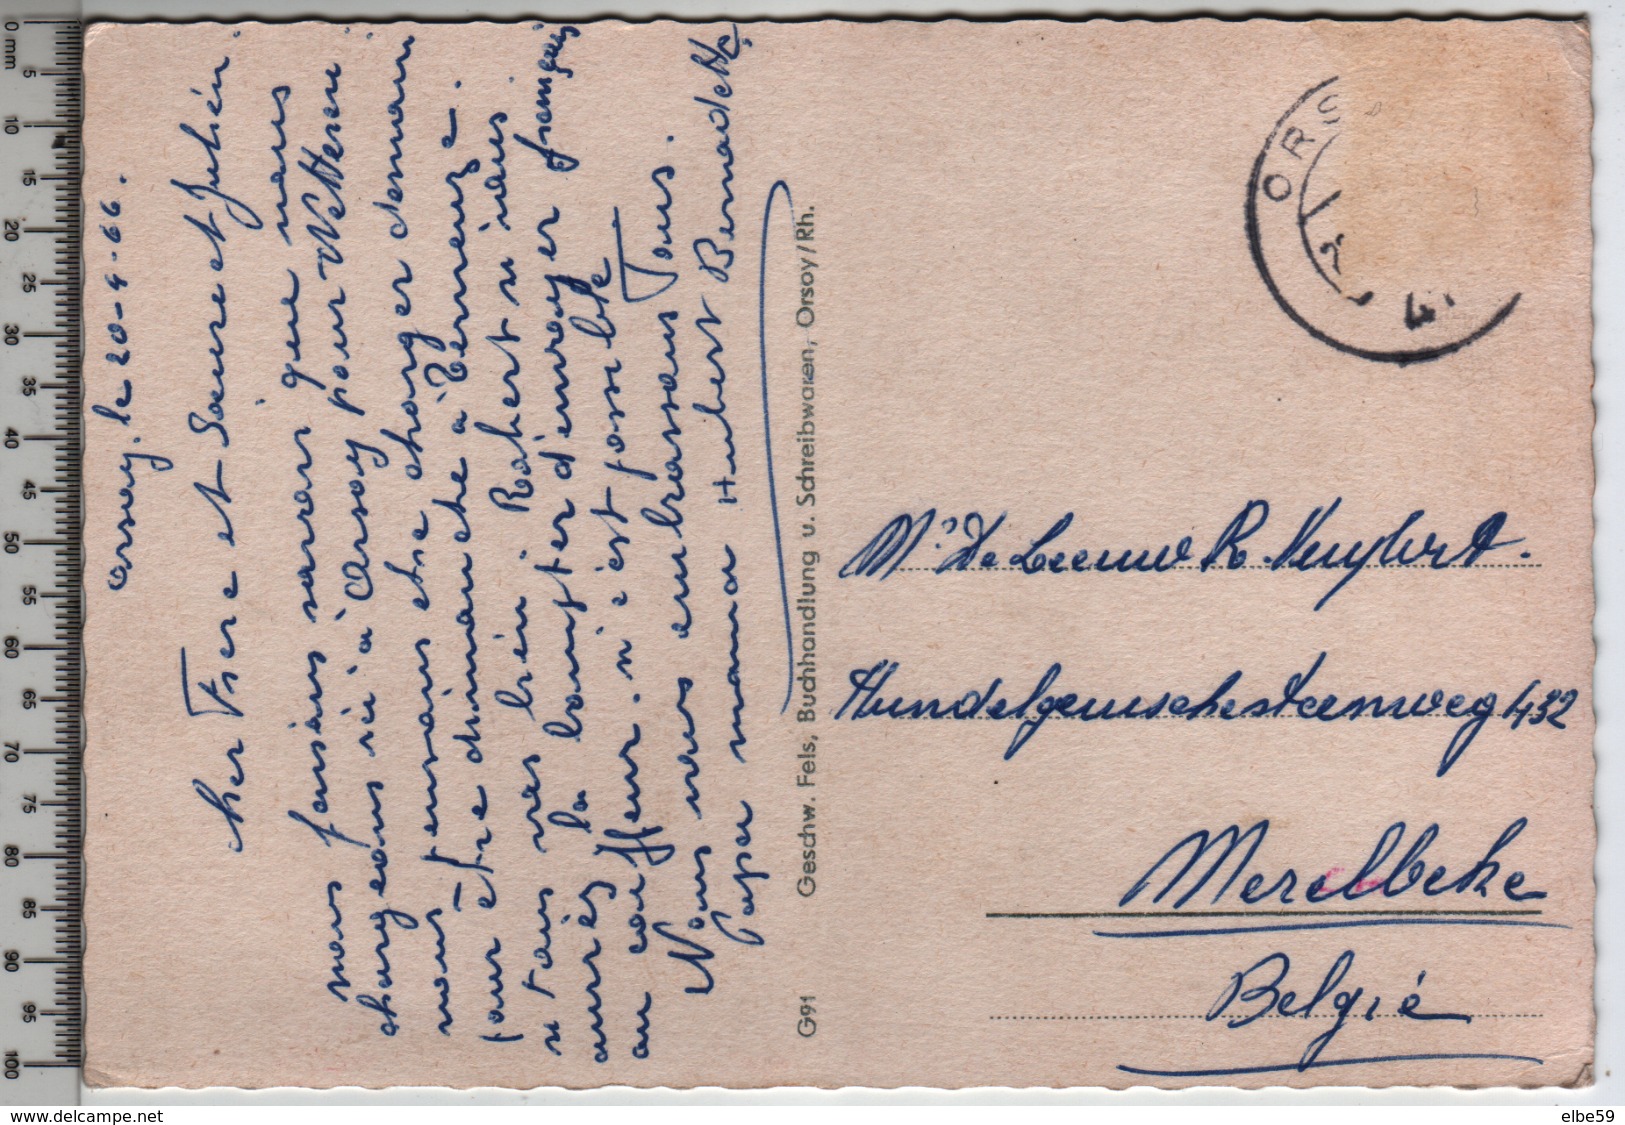 orsoy. le 20-4-66.
cher Frere et Soeur et Julién.
nous faisions savoir que nous
chargeons ici à Orsoy pour Wetteren
nous pensons etre charger demain
pour être dimanche à Terneuze.
si tous vas bien. Robert si vous
auriez la bonté d'envoyer
au coiffeur. si c'est possible
Nous vous embrassons Tous.
Papa mama Hubert Bernadette
G91 Geschw. Fels, Buchhandlung u. Schreibwaren, Orsoy/Rh.
ORS
Mr De Leeuw R. Huybrt.
Hundelgemschesteenweg 432
Merelbeke
Belgié
0 mm 5 10 15 20 25 30 35 40 45 50 55 60 65 70 75 80 85 90 95 100
www.delcampe.net
elbe59